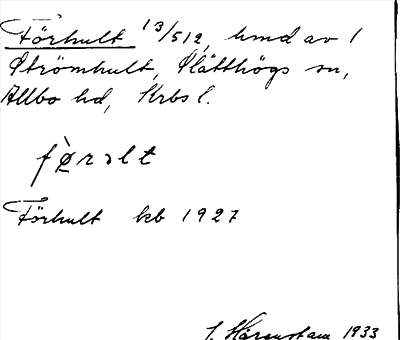 Förhult 13/512, hmd av 1
Strömhult, Slätthögs sn,
Allbo hd, Krbs l.
fø̀rəlt
Förhult kb 1927
J. Härenstam 1933